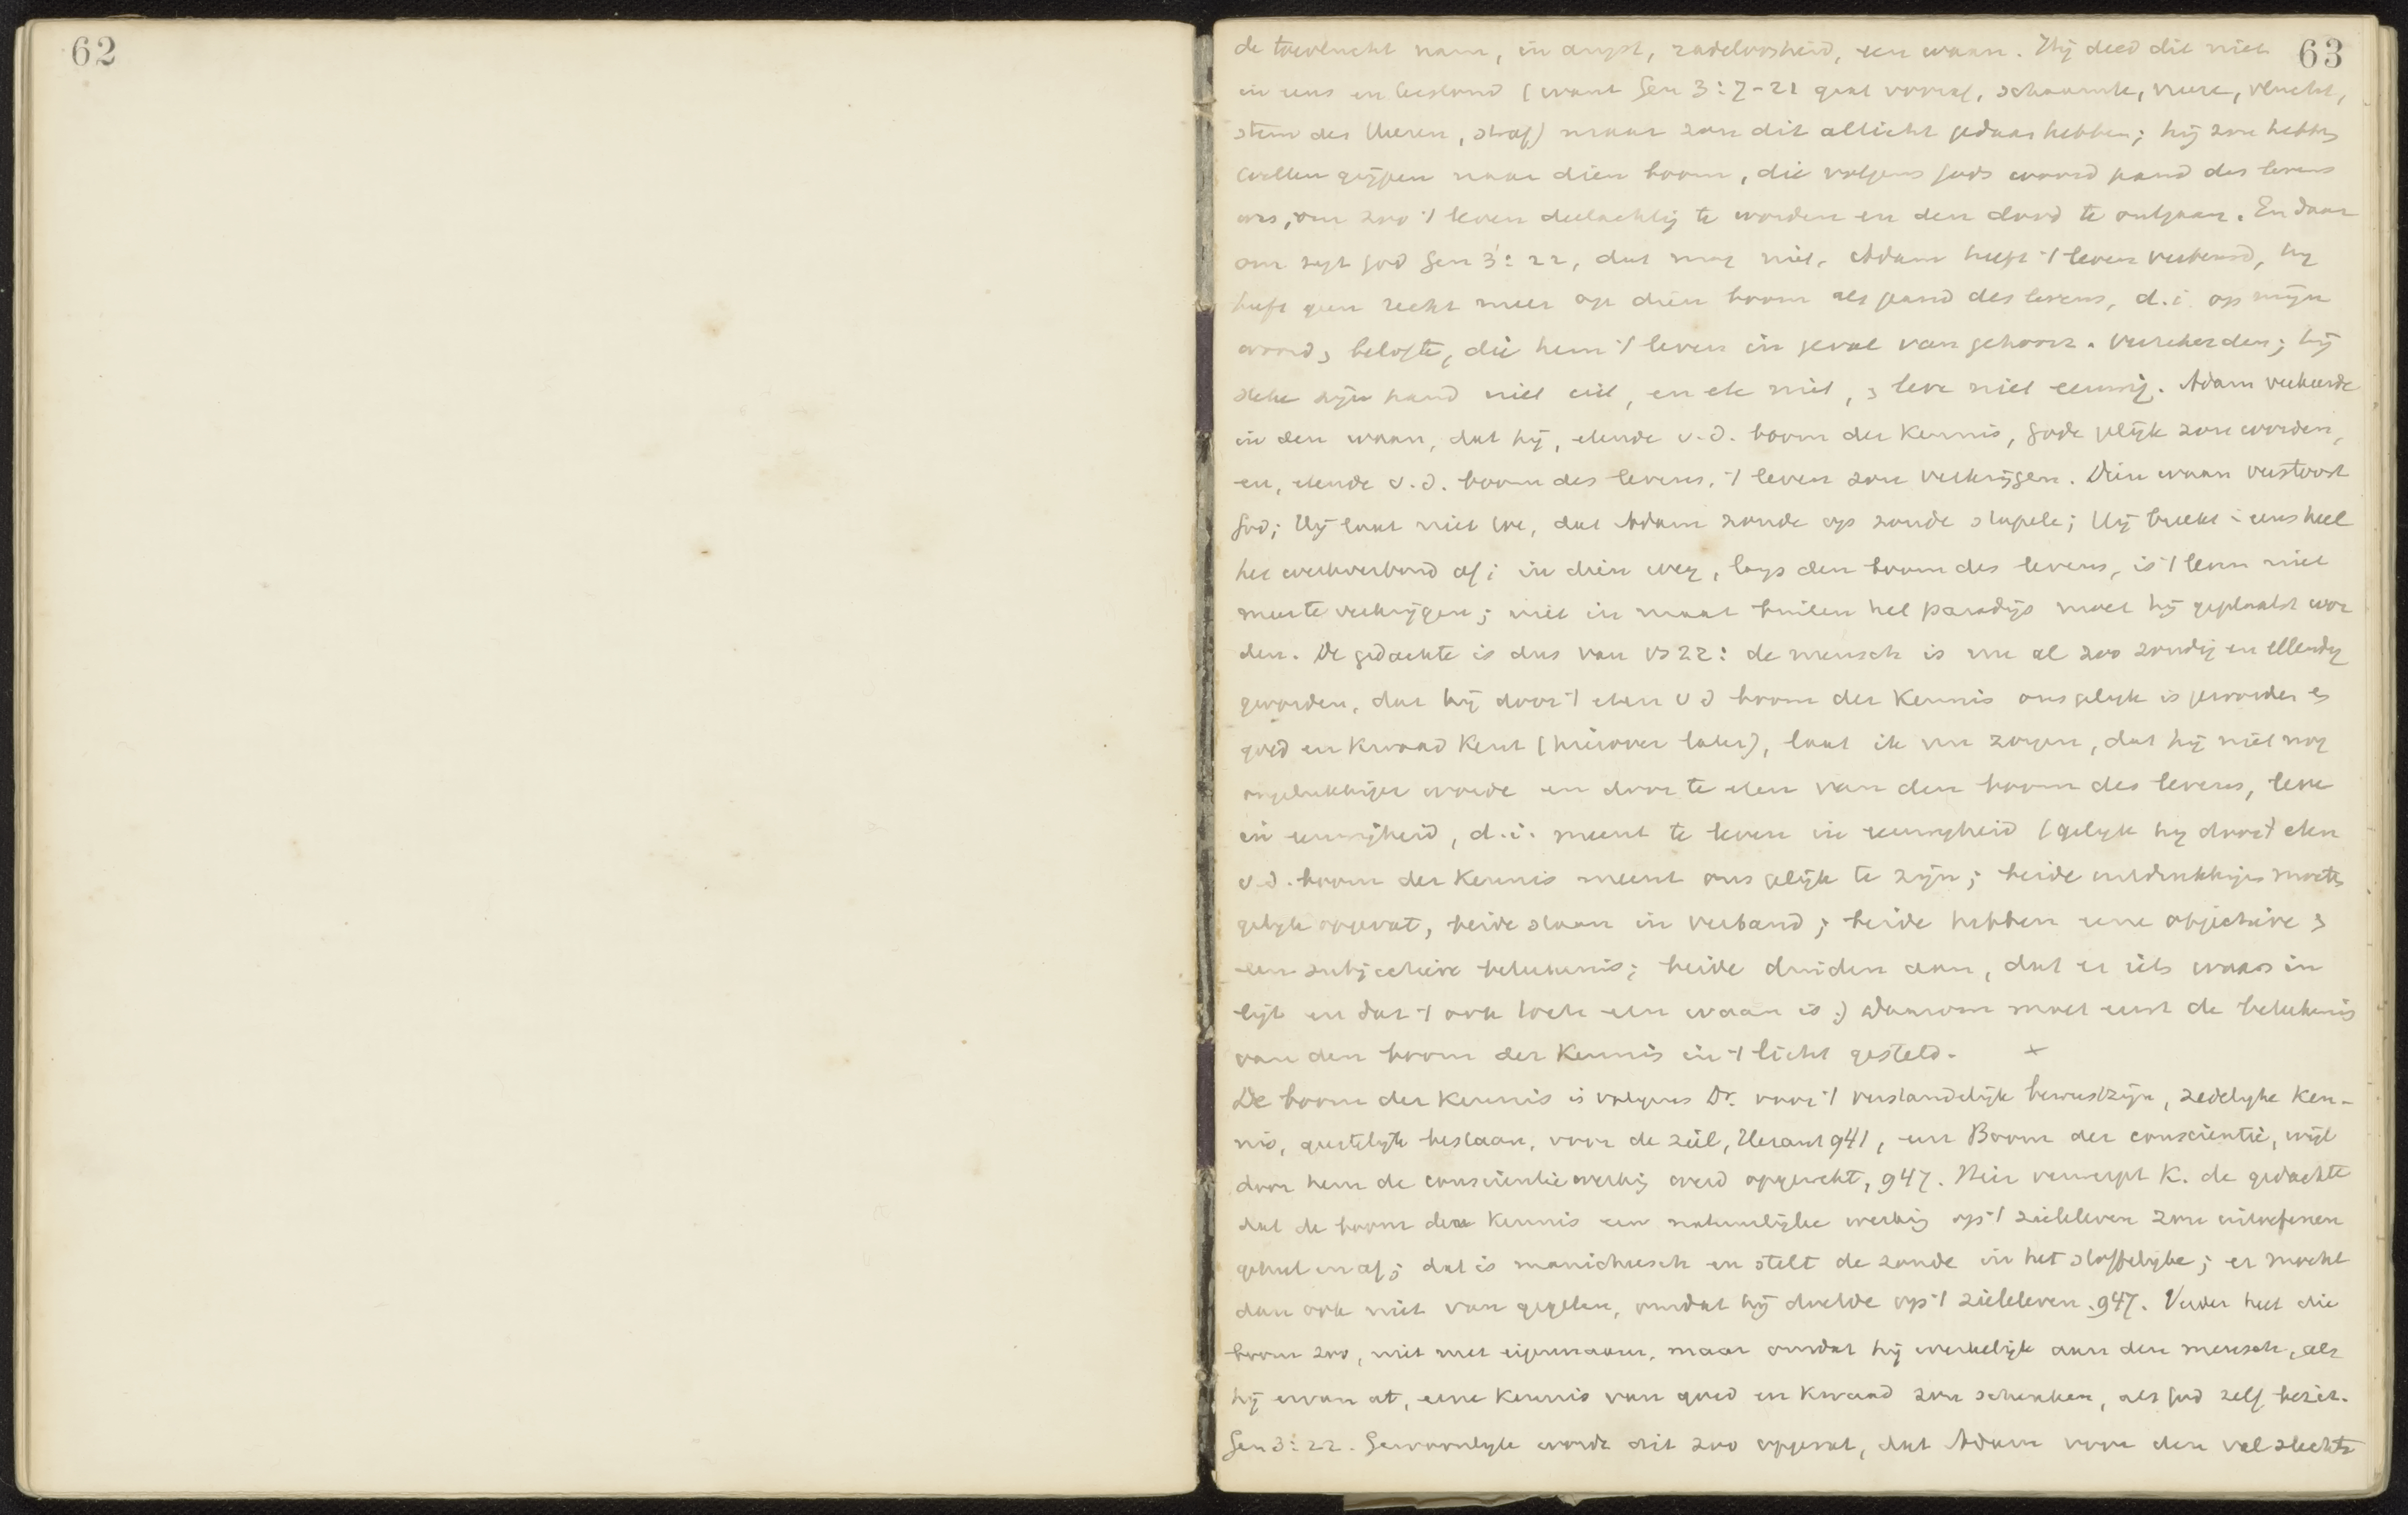 62
63
de toevlucht nam, in angst, radeloosheid, een waan. Hij deed dit niet
in eens en (want Gen 3:7-21 gaat vooraf, schaamte, vrees, vlucht,
stem des Heeren, straf) maar zou dit allicht gedaan hebben; hij zou hebben
willen grijpen naar dien boom, die volgens Gods woord pand des levens
was, om zoo 't leven deelachtig te worden en den dood te ontgaan. En daar
om zegt God Gen 3:22, dat mag niet. Adam heeft 't leven verbeurd, hij
heeft geen recht meer op dien boom als pand des levens, d.i. op mijn
woord, belofte, die hem 't leven in geval van gehoorz. verzekerden; hij
steke zijn hand niet uit, en ete niet, en leve niet eeuwig. Adam verkeerde
in den waan, dat hij, etende v.d. boom der Kennis, Gode gelijk zou worden,
en, etende v.d. boom des levens, 't leven zou verkrijgen. Dien waan verstoort
God; Hij laat niet toe, dat Adam zonde op zonde stapele; Hij breekt in eens heel
het werkverbond af; in dien weg, langs den boom des levens, is 't leven niet
meer te verkrijgen; niet in maar buiten het paradijs moet hij geplaatst wor
den. De gedachte is dus van vs 22: de mensch is nu al zoo zondig en ellendig
geworden, dat hij door 't eten v d boom der Kennis ons gelijk is geworden en
goed en kwaad kent (hierover later), laat ik nu zorgen, dat hij niet nog
ongelukkiger worde en door te eten van den boom des levens, leve
in eeuwigheid, d.i. meent te leven in eeuwigheid (gelijk hij door 't eten
v.d. boom der Kennis meent ons gelijk te zijn; beide uitdrukkingen moeten
gelijk opgevat, beide staan in verband; beide hebben eene objectieve en
een subjectieve beteekenis; beide duiden aan, dat er iets waars in
ligt en dat 't ook toch een waan is.) Daarom moet eerst de beteekenis
van den boom der Kennis in 't licht gesteld. x
De boom der Kennis is volgens Dr. voor 't verstandelijk bewustzijn, zedelijke Ken-
nis, geestelijk bestaan, voor de ziel, Heraut 941, een Boom der conscientie, wijl
door hem de conscientiewerking werd opgewekt, 947. Hier verwerpt K. de gedachte
dat de boom der Kennis een natuurlijke werking op 't zieleleven zou uitoefenen
geheel en af; dat is manicheesch en stelt de zonde in het stoffelijke; er mocht
dan ook niet van gegeten, omdat hij doelde op 't zieleleven. 947. Verder heet die
boom zoo, niet met eigennaam, maar omdat hij werkelijk aan den mensch, als
hij ervan at, eene Kennis van goed en kwaad zou schenken, als God zelf bezit.
Gen 3:22. Gewoonlijk wordt dit zoo opgevat, dat Adam voor den val slechts